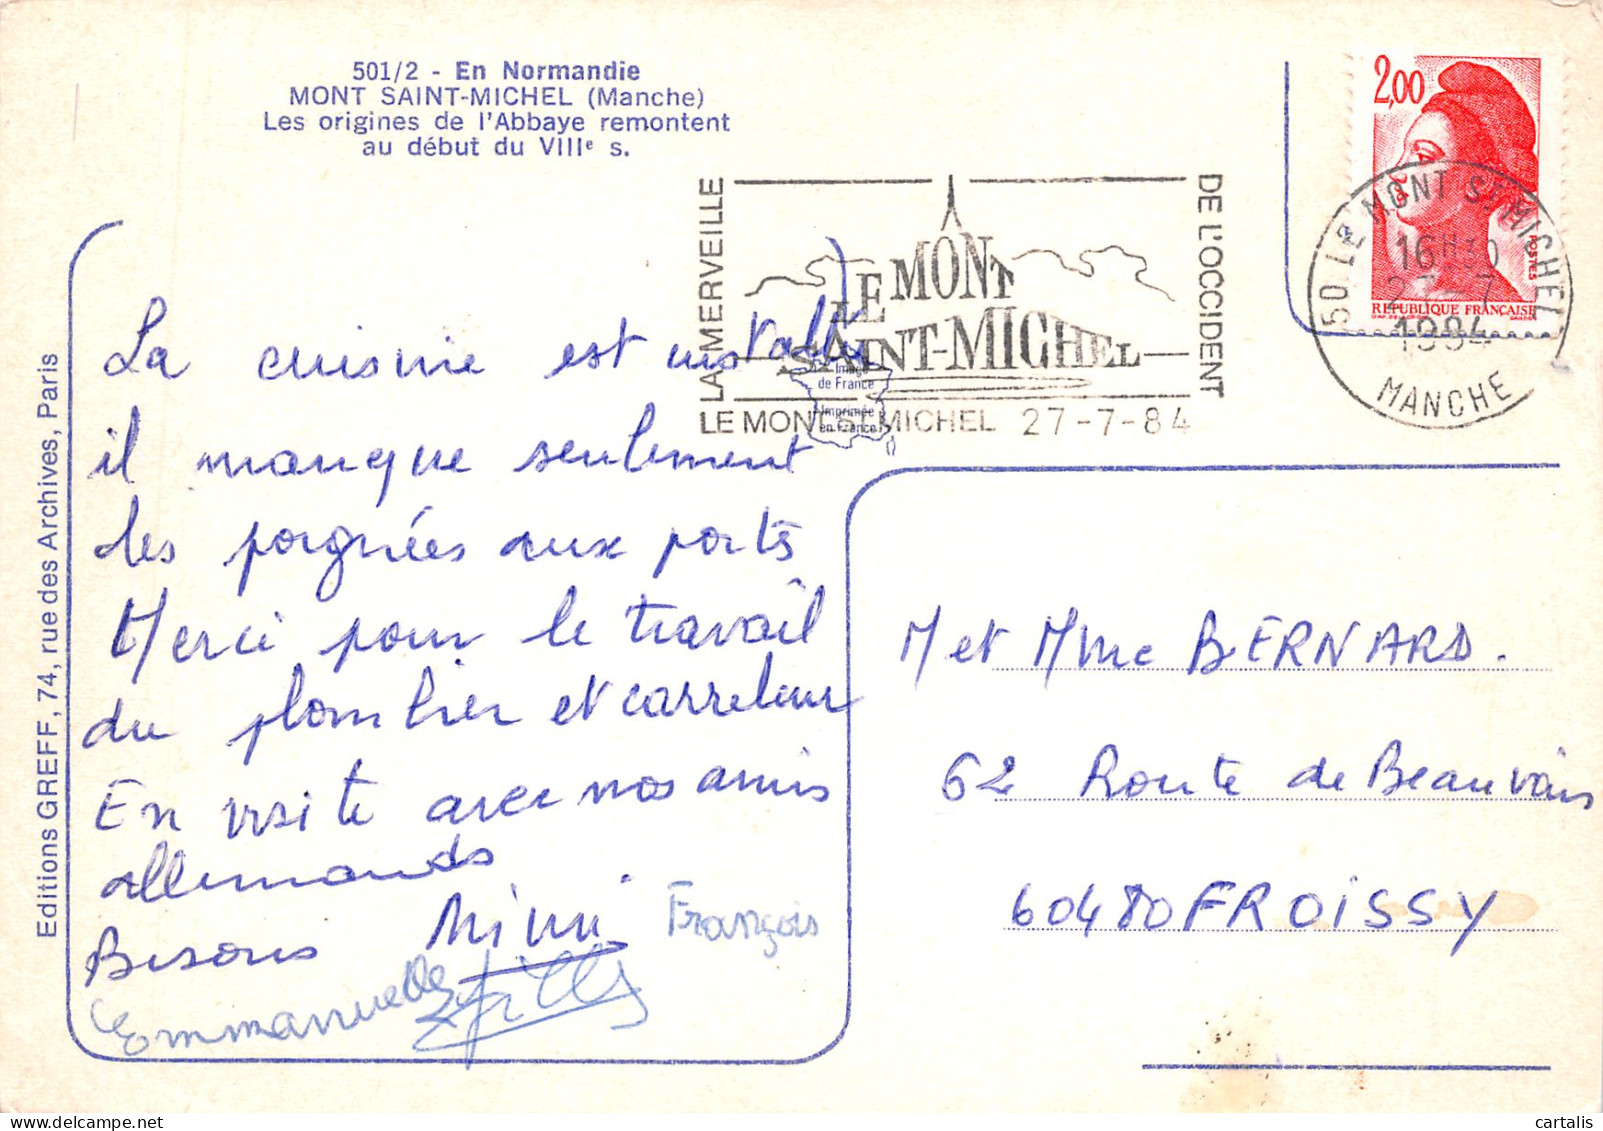 501/2 - En Normandie
MONT SAINT-MICHEL (Manche)
Les origines de l'Abbaye remontent
au début du VIIIe s.
2,00
POSTES
REPUBLIQUE FRANÇAISE
50 LE MONT ST MICHEL
16H30
27-7
1984
MANCHE
LA MERVEILLE
LE MONT
SAINT-MICHEL
DE L'OCCIDENT
LE MONT ST MICHEL 27-7-84
Image
de France
Imprimée
en France
Editions GREFF, 74, rue des Archives, Paris
La cuisine est installée
il manque seulement
des poignées aux portes
Merci pour le travail
du plombier et carreleur
En visite avec nos amis
allemands
Bisous Mimi François
Emmanuelle Gilles
M et Mme BERNARD.
62 Route de Beauvais
60480 FROISSY
cartalis